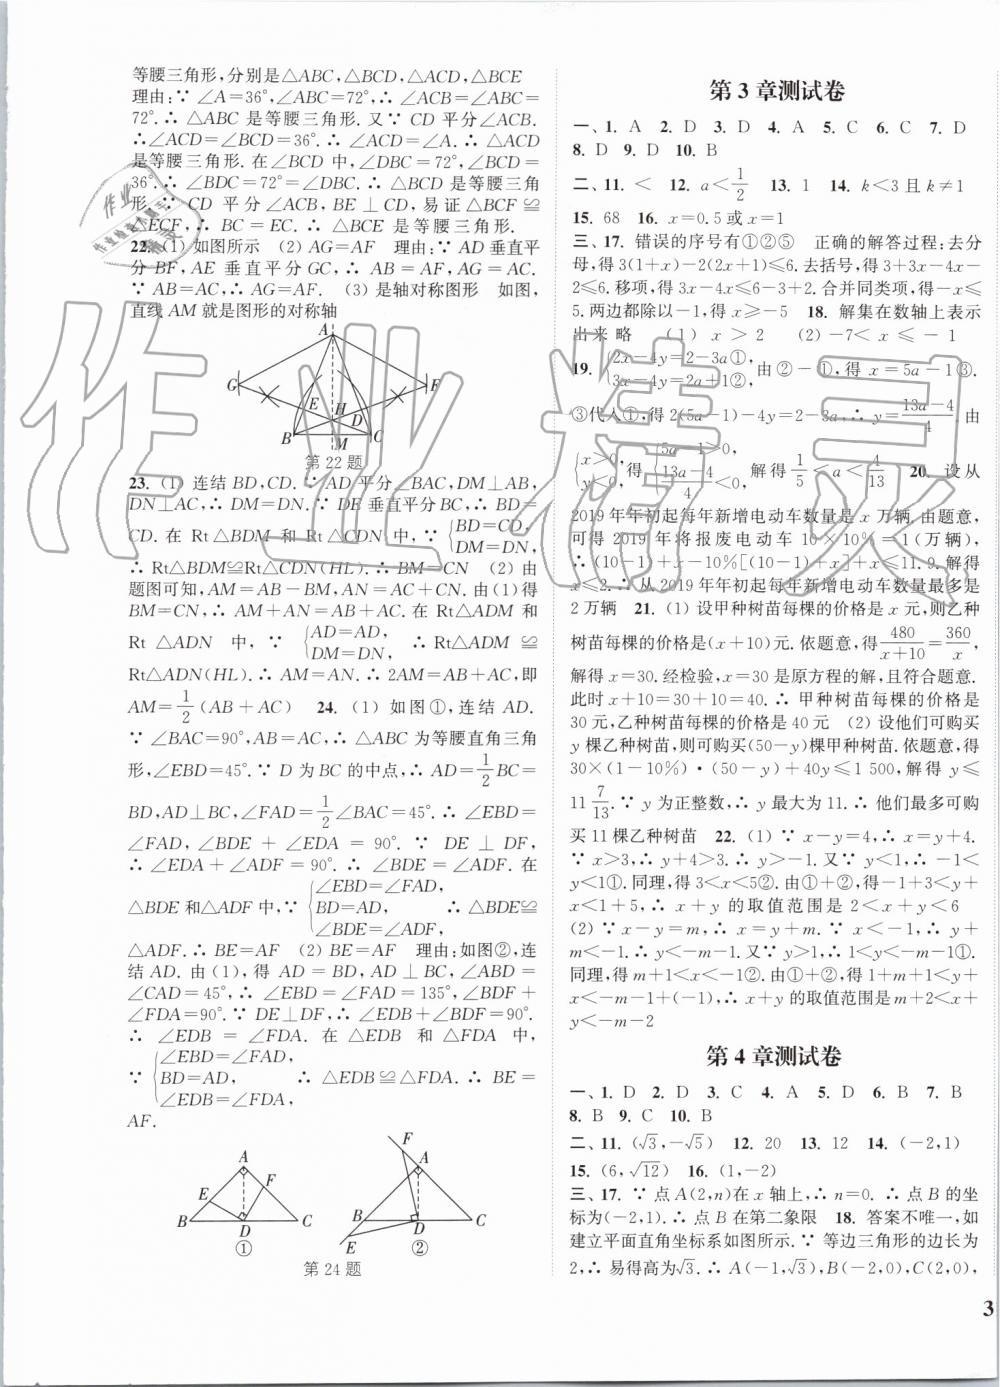 等腰三角形,分别是△ABC,△BCD,△ACD,△BCE
理由:∵ ∠A=36°,∠ABC=72°,∴ ∠ACB=∠ABC=
72°.∴ △ABC 是等腰三角形.又∵ CD 平分∠ACB.
∴∠ACD=∠BCD=36°.∴ ∠ACD=∠A.∴ △ACD
是等腰三角形.在∠BCD 中,∠DBC=72°,∠BCD=
36°.∴ ∠BDC=72°=∠DBC.∴ △BCD 是等腰三角
形.∵ CD 平分∠ACB,BE⊥CD,易证△BCF≌
△ECF,∴ BC=CE,∴ △BCE 是等腰三角形
22. (1) 如图所示 (2) AG=AF 理由:∵ AD 垂直平
分 BF,AE 垂直平分 GC,∴ AB=AF,AG=AC.
∵ AB=AC,∴ AG=AF. (3) 是轴对称图形 如图,
直线 AM 就是图形的对称轴
A
G F
E H D
B M C
第 22 题
23. (1) 连结 BD,CD.∵ AD 平分∠BAC,DM⊥AB,
DN⊥AC,∴ DM=DN.∵ DE 垂直平分 BC,∴ BD=
CD.在 Rt△BDM 和 Rt△CDN 中,∵ {BD=CD, DM=DN,
∴ Rt△BDM≌Rt△CDN(HL).∴ BM=CN (2) 由
题图可知,AM=AB-BM,AN=AC+CN.由(1)得
BM=CN,∴ AM+AN=AB+AC.在 Rt△ADM 和
Rt △ADN 中, ∵ {AD=AD, DM=DN. ∴ Rt△ADM ≌
Rt△ADN(HL).∴ AM=AN.∴ 2AM=AB+AC,即
AM=1/2(AB+AC) 24. (1) 如图①,连结 AD.
∵ ∠BAC=90°,AB=AC,∴ △ABC 为等腰直角三角
形,∠EBD=45°.∵ D 为 BC 的中点,∴ AD=1/2BC=
BD,AD⊥BC,∠FAD=1/2∠BAC=45°.∴ ∠EBD=
∠FAD,∠BDE + ∠EDA = 90°. ∵ DE ⊥ DF,
∴ ∠EDA + ∠ADF = 90°. ∴ ∠BDE = ∠ADF. 在
△BDE 和△ADF 中,∵ {∠EBD=∠FAD, BD=AD, ∠BDE=∠ADF, ∴ △BDE≌
△ADF.∴ BE=AF (2) BE=AF 理由:如图②,连
结 AD.由(1),得 AD=BD,AD⊥BC,∠ABD=
∠CAD=45°,∴ ∠EBD=∠FAD=135°,∠BDF+
∠FDA=90°.∵ DE⊥DF,∴ ∠EDB+∠BDF=90°.
∴ ∠EDB = ∠FDA. 在 △EDB 和 △FDA 中,
∵ {∠EBD=∠FAD, BD=AD, ∠EDB=∠FDA, ∴ △EDB≌△FDA.∴ BE=
AF.
A
E F
B D C
①
F
A
B D C
E ②
第 24 题
第 3 章测试卷
一、1. A 2. D 3. D 4. A 5. C 6. C 7. D
8. D 9. D 10. B
二、11. < 12. a<1/2 13. 1 14. k<3 且 k≠1
15. 68 16. x=0.5 或 x=1
三、17. 错误的序号有①②⑤ 正确的解答过程:去分
母,得 3(1+x)-2(2x+1)≤6.去括号,得 3+3x-4x-
2≤6.移项,得 3x-4x≤6-3+2.合并同类项,得-x≤
5.两边都除以-1,得 x≥-5 18. 解集在数轴上表示
出来略 (1) x>2 (2) -7<x≤-1
19. {2x-4y=2-3a①, 3x-4y=2a+1②. 由②-①,得 x=5a-1③.
③代入①,得 2(5a-1)-4y=2-3a,∴ y=(13a-4)/4.由
{x>0, y<0, 得 {5a-1>0, (13a-4)/4<0, 解得 1/5<a<4/13 20. 设从
2019 年年初起每年新增电动车数量是 x 万辆.由题意,
可得 2019 年将报废电动车 10×10%=1(万辆),
∴ (10-1)+x-10%[(10-1)+x]+x≤11.9.解得
x≤2.∴ 从 2019 年年初起每年新增电动车数量最多是
2 万辆 21. (1) 设甲种树苗每棵的价格是 x 元,则乙种
树苗每棵的价格是(x+10)元.依题意,得480/(x+10)=360/x,
解得 x=30.经检验,x=30 是原方程的解,且符合题意.
此时 x+10=30+10=40.∴ 甲种树苗每棵的价格是
30 元,乙种树苗每棵的价格是 40 元 (2) 设他们可购买
y 棵乙种树苗,则可购买(50-y)棵甲种树苗.依题意,得
30×(1-10%)·(50-y)+40y≤1 500,解得 y≤
11 7/13.∵ y 为正整数,∴ y 最大为 11.∴ 他们最多可购
买 11 棵乙种树苗 22. (1) ∵ x-y=4,∴ x=y+4.
∵ x>3,∴ y+4>3.∴ y>-1.又∵ y<1,∴ -1<
y<1①.同理,得 3<x<5②.由①+②,得-1+3<y+
x<1+5,∴ x+y 的取值范围是 2<x+y<6
(2) ∵ x-y=m,∴ x=y+m.∵ x<-1,∴ y+
m<-1.∴ y<-m-1.又∵ y>1,∴ 1<y<-m-1①.
同理,得 m+1<x<-1②.由①+②,得 1+m+1<y+
x<-m-1+(-1),∴ x+y 的取值范围是 m+2<x+
y<-m-2
第 4 章测试卷
一、1. D 2. D 3. C 4. A 5. D 6. B 7. B
8. B 9. C 10. B
二、11. (√3,-√5) 12. 20 13. 12 14. (-2,1)
15. (6,√12) 16. (1,-2)
三、17. ∵ 点 A(2,n)在 x 轴上,∴ n=0.∴ 点 B 的坐
标为(-2,1).∴ 点 B 在第二象限 18. 答案不唯一,如
建立平面直角坐标系如图所示.∵ 等边三角形的边长为
2,∴ 易得高为√3.∴ A(-1,√3),B(-2,0),C(2,0),
3
作业精灵